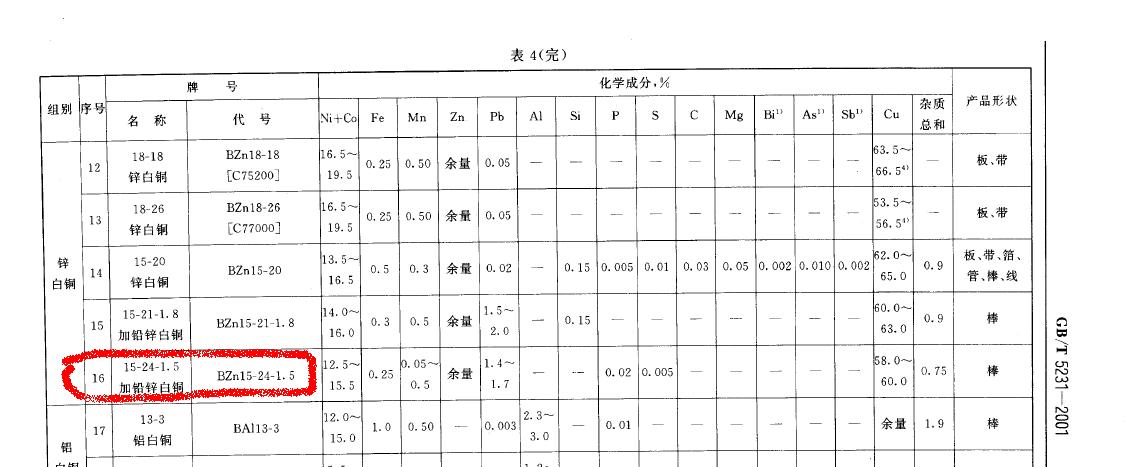 表 4(完)
组别 序号 牌 号 化学成分,% 产品形状
名 称 代 号 Ni+Co Fe Mn Zn Pb Al Si P S C Mg Bi¹⁾ As¹⁾ Sb¹⁾ Cu 杂质总和
锌白铜
12 18-18 锌白铜 BZn18-18 [C75200] 16.5~19.5 0.25 0.50 余量 0.05 — — — — — — — — — 63.5~66.5⁴⁾ — 板、带
13 18-26 锌白铜 BZn18-26 [C77000] 16.5~19.5 0.25 0.50 余量 0.05 — — — — — — — — — 53.5~56.5⁴⁾ — 板、带
14 15-20 锌白铜 BZn15-20 13.5~16.5 0.5 0.3 余量 0.02 — 0.15 0.005 0.01 0.03 0.05 0.002 0.010 0.002 62.0~65.0 0.9 板、带、箔、管、棒、线
15 15-21-1.8 加铅锌白铜 BZn15-21-1.8 14.0~16.0 0.3 0.5 余量 1.5~2.0 — 0.15 — — — — — — — 60.0~63.0 0.9 棒
16 15-24-1.5 加铅锌白铜 BZn15-24-1.5 12.5~15.5 0.25 0.05~0.5 余量 1.4~1.7 — — 0.02 0.005 — — — — — 58.0~60.0 0.75 棒
铝白铜
17 13-3 铝白铜 BAl13-3 12.0~15.0 1.0 0.50 — 0.003 2.3~3.0 — 0.01 — — — — — — 余量 1.9 棒
GB/T 5231—2001